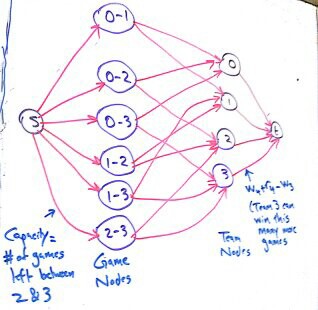 0-1
0-2
0-3
1-2
1-3
2-3
S
0
1
2
3
t
Capacity =
# of games
left between
2 & 3
Game
Nodes
Team
Nodes
W4+r4-W3
(Team 3 can
win this
many more
games